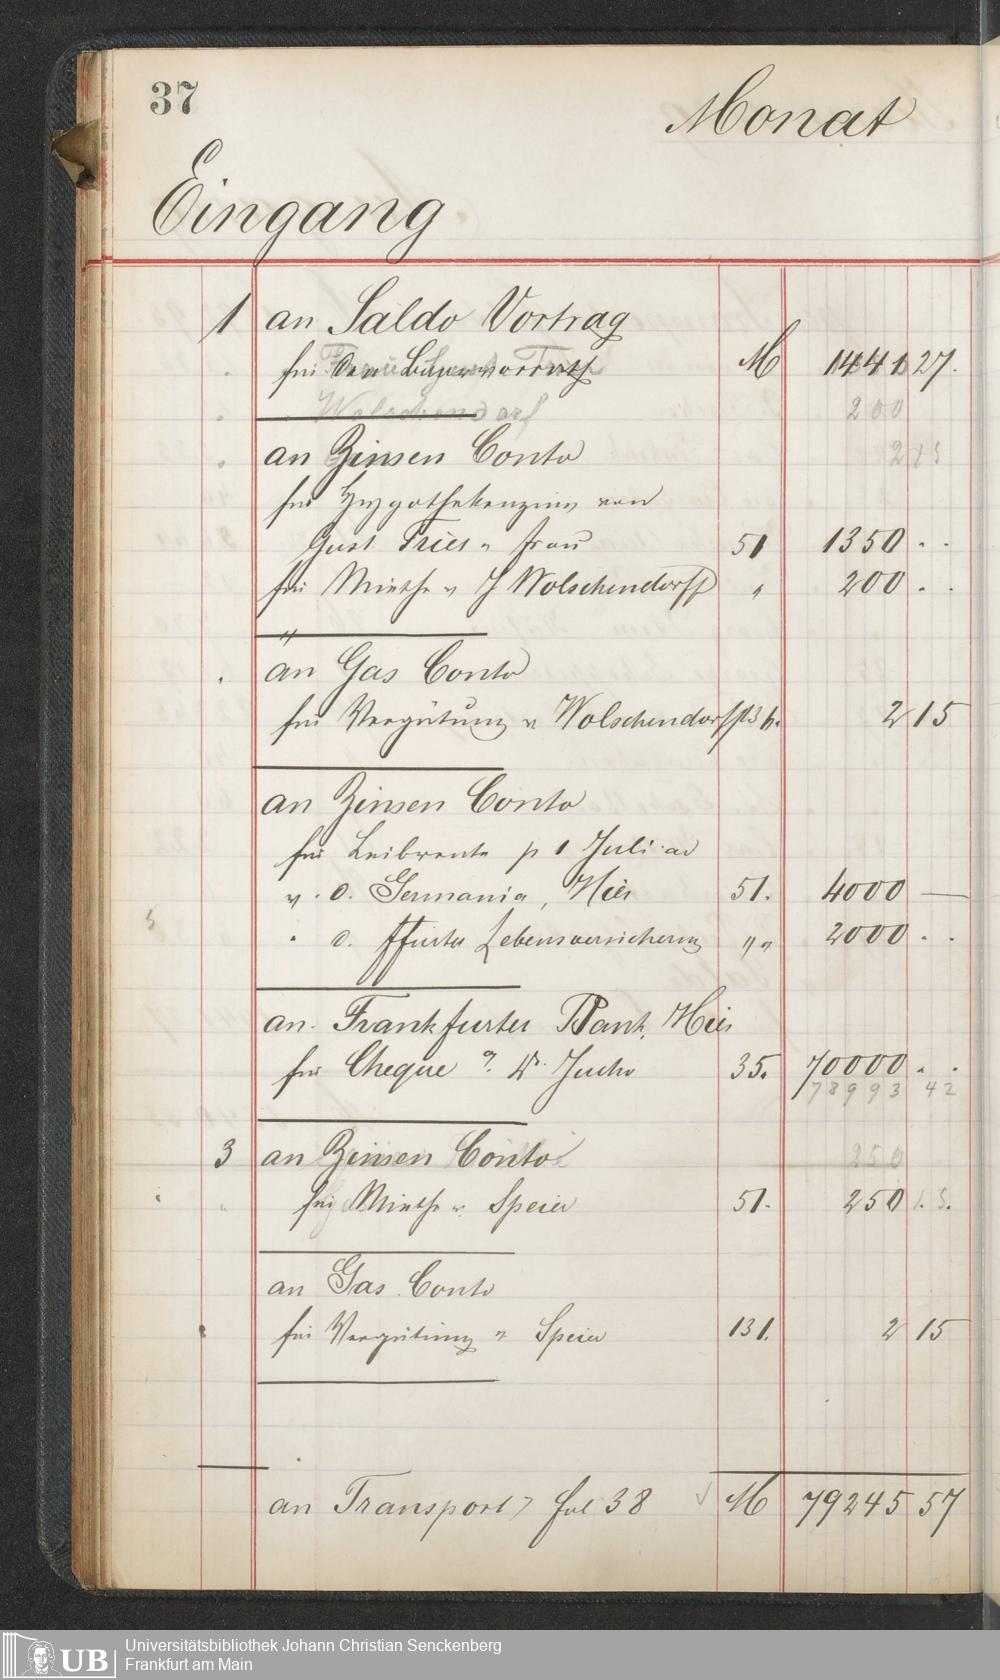 37
Monat
Eingang
1 an Saldo Vortrag
für den baarvorrath M 1441 27.
200
an Zinsen Conto 2 15
für Hypothekenzins von
Gust. Fries u. Frau 51 1350 . .
für Miethe v J Wolschendorff " 200 . .
an Gas Conto
für Vergütung v Wolschendorff 2 15
an Zinsen Conto
für Leibrente p 1 Juli ac
v. d. Germania, Hier 51. 4000 —
" d. Ffurter Lebensversicherung "" 2000 . .
an Frankfurter Bank, Hier
für Cheque Dr. Jucho 35. 70000 . .
78993 42
3 an Zinsen Conto 250
für Miethe v. Speier 51. 250
an Gas Conto
für Vergütung v Speier 131. 2 15
an Transport fol 38 M 79245 57
UB
Universitätsbibliothek Johann Christian Senckenberg
Frankfurt am Main